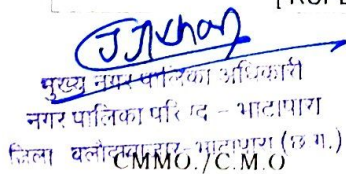 मुख्य नगर पालिका अधिकारी
नगर पालिका परिषद - भाटापारा
जिला बलौदाबाजार-भाटापारा (छ.ग.)
CMMO./C.M.O